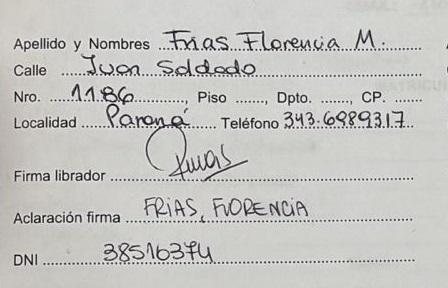 Apellido y Nombres Frias Florencia M.
Calle Juan Soldado
Nro. 1186, Piso ......, Dpto. ......, CP. ......
Localidad Paraná Teléfono 343.6989317
Firma librador
Aclaración firma FRIAS, FLORENCIA
DNI 38516374